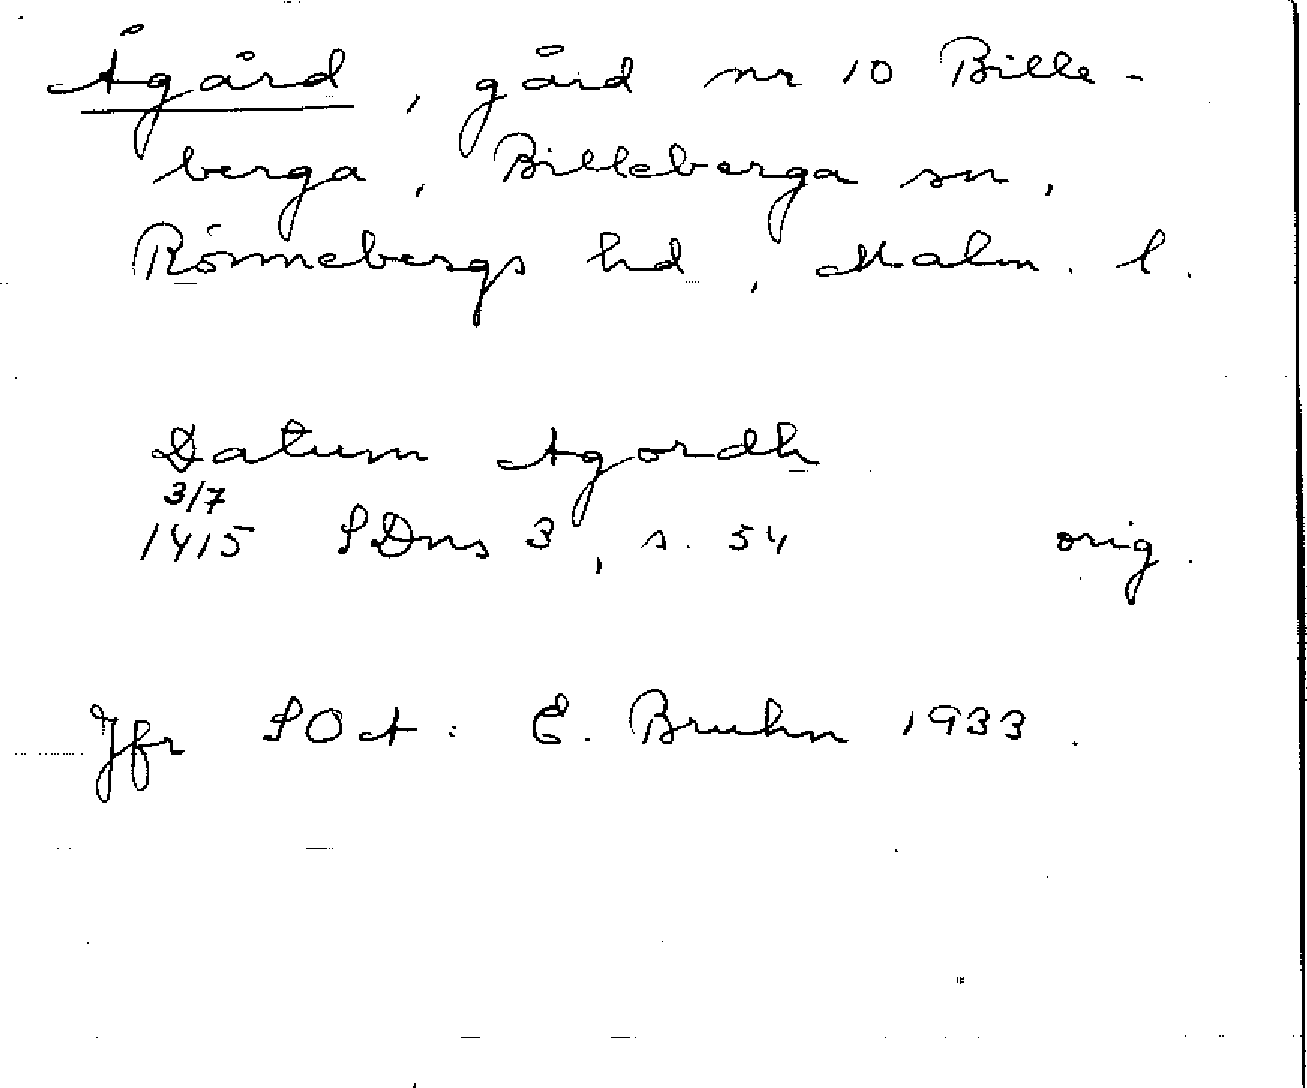 Ågård, gård nr 10 Bille-
berga, Billeberga sn,
Rönnebergs hd, Malm. l.
Datum Agordh
3/7
1415 SDns 3, s. 54 orig.
Jfr SOA: E. Bruhn 1933.